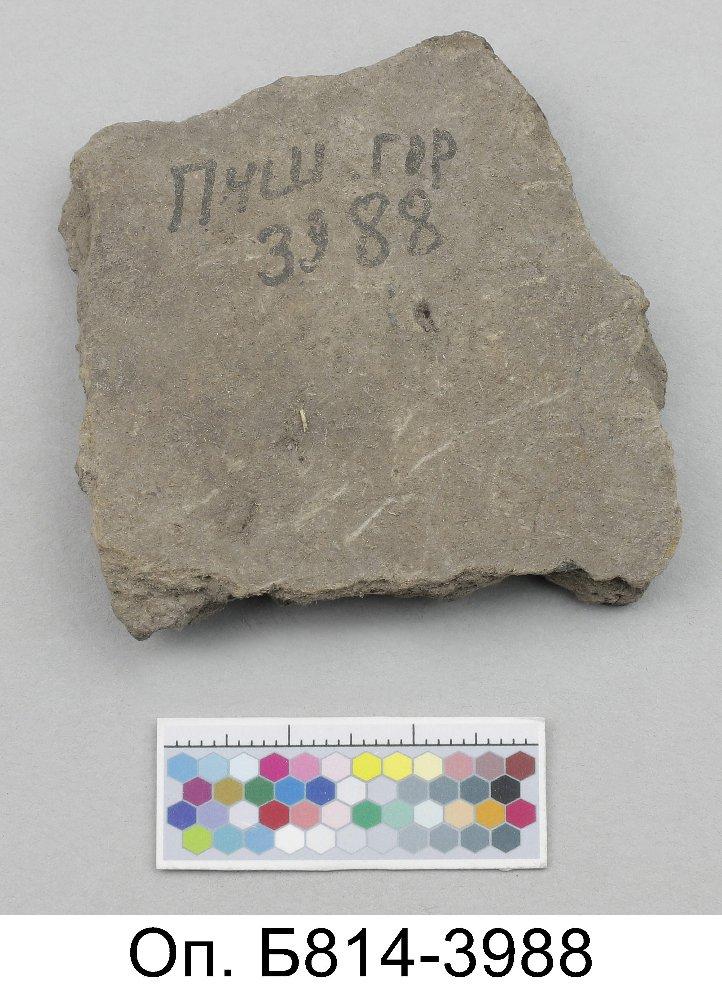 Пчш гор
3988
Оп. Б814-3988